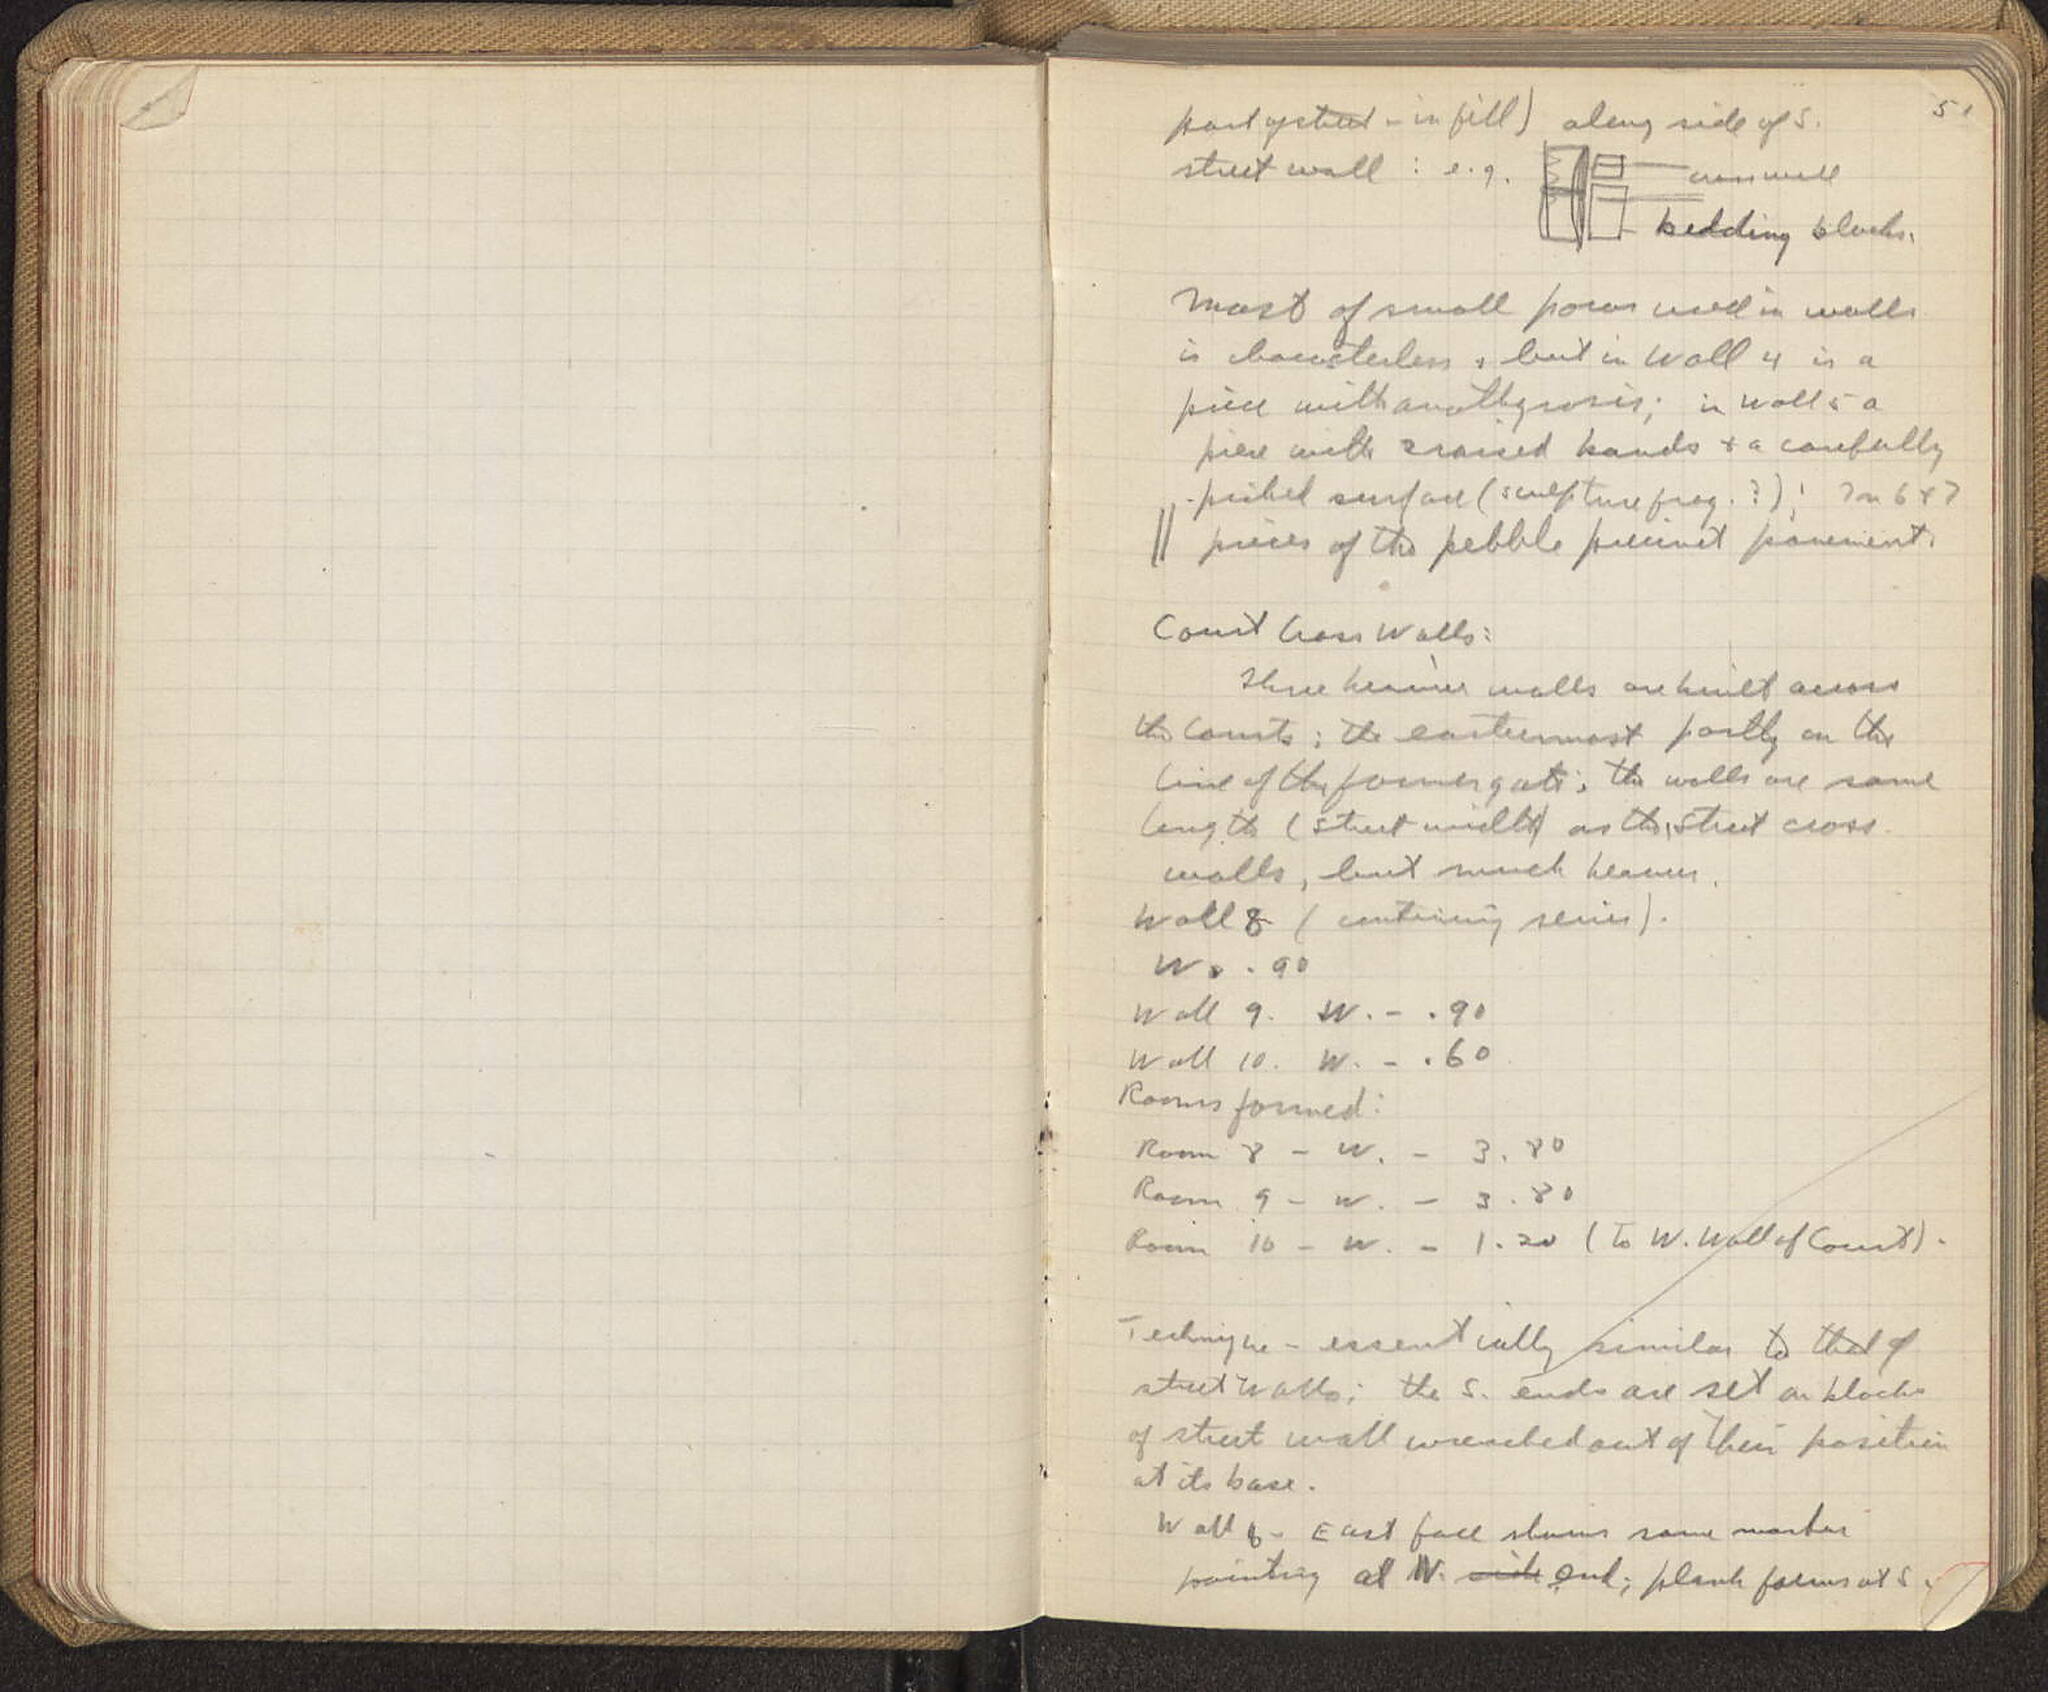 51
part of street - in fill) along side of S.
street wall : e.g.
cross wall
bedding blocks.
Most of small poros used in walls
is characterless, but in Wall 4 is a
piece with anathyrosis; in Wall 5 a
piece with 2 raised bands + a carefully
picked surface (sculpture frag. ?); In 6 + 7
pieces of the pebble precinct pavement.
Court Cross Walls:
Three heavier walls are built across
the Courts; the easternmost partly on the
line of the former gate; the walls are same
length (street width) as the street cross
walls, but much heavier.
Wall 8 (continuing series).
W. .90
Wall 9. W. - .90
Wall 10. W. - .60
Rooms formed:
Room 8 - W. - 3.80
Room 9 - W. - 3.80
Room 10 - W. - 1.20 (to W. Wall of Court).
Technique - essentially similar to that of
street walls; the S. ends are set on blocks
of street wall wrenched out of their position
at its base.
Wall 8 - East face shows some mortar
pointing at N. side end; plank forms at S.